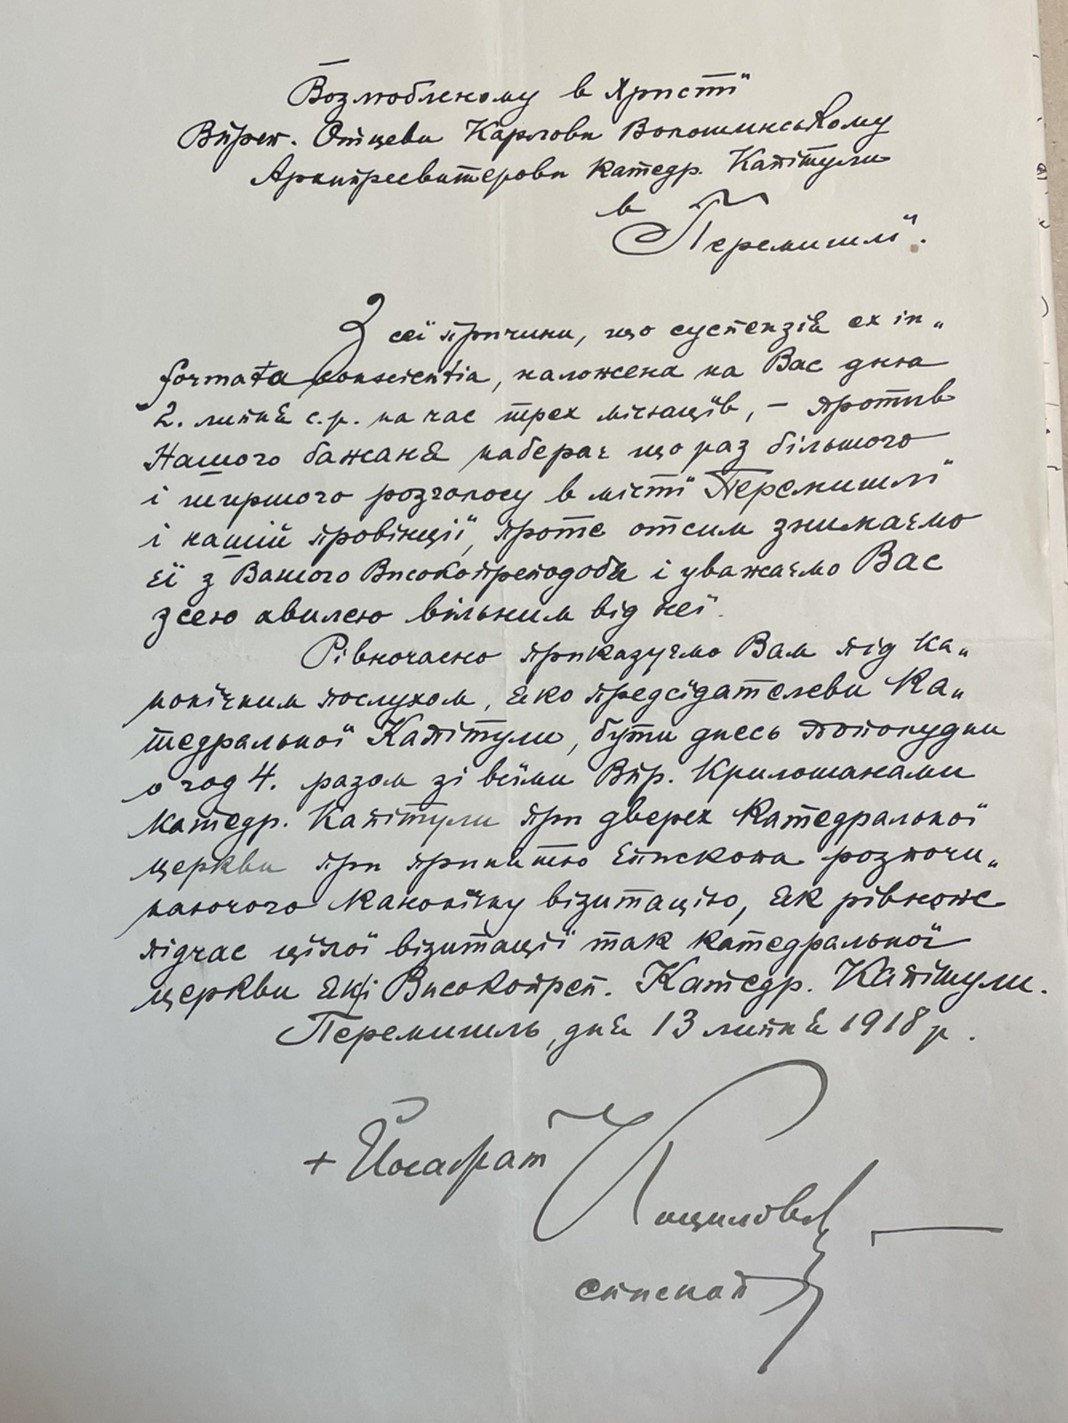 Возлюбленому в Христї
Впреп. Отцеви Карлови Волошинському
Архипресвитерови катедр. Капітули
в
Перемишлї.
З сеї причини, що суспензія ex in„
formata conscientia, наложена на Вас дня
2. липня с.р. на час трех місяцїв, – против
Нашого бажаня наберає що раз більшого
і ширшого розголосу в місті Перемишлї
і нашій провінції, проте отсим знимаємо
єї з Вашого Високопреподобія і уважаємо Вас
з сею хвилею вільним від неї.
Рівночасно приказуємо Вам під ка„
нонїчним послухом, яко предсїдателеви Ка„
тедральної Капітули, бути днесь пополудни
о год 4. разом зі всїми Впр. Крилошанами
Катедр. Капітули при дверех Катедральної
церкви при принятю Єпископа розпочи„
наючого канонїчну візитацію, як рівнож
підчас цїлої візитації так катедральної
церкви як і Високопреп. Катедр. Капітули.
Перемишль, дня 13 липня 1918 р.
+ Йосафат Коциловський
епископ